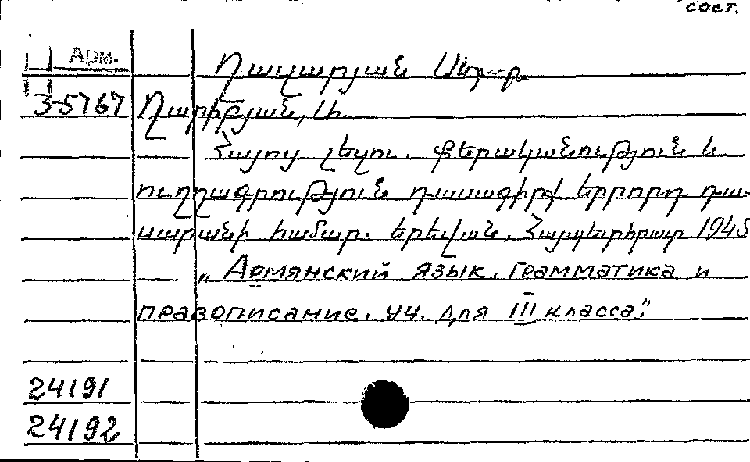 сост.
Арм.
Ղազարյան
3-5767 Ղարիբյան, Ա.
Հայոց լեզու. Քերականություն և
ուղղագրություն դասագիրք երրորդ դա-
սարանի համար. Երևան. Հայպետհրատ 1945
„Армянский язык. Грамматика и
правописание. уч. для III класса."
24191
24192